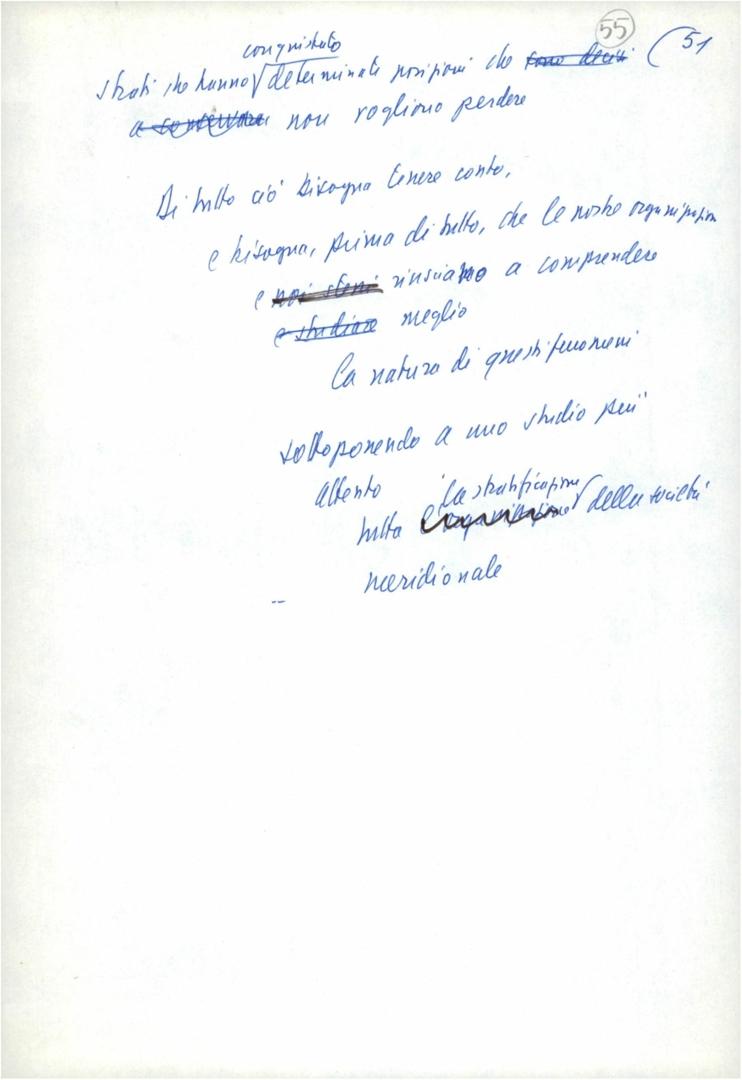 55
(51
conquistato
strati che hanno determinate posizioni che sono decisi
a conservare non vogliono perdere
Di tutto ciò bisogna tenere conto,
e bisogna, prima di tutto, che le nostre organizzazioni
e noi stessi riusciamo a comprendere
e studiare meglio
la natura di questi fenomeni
sottoponendo a uno studio più
attento la stratificazione
tutta della società
meridionale